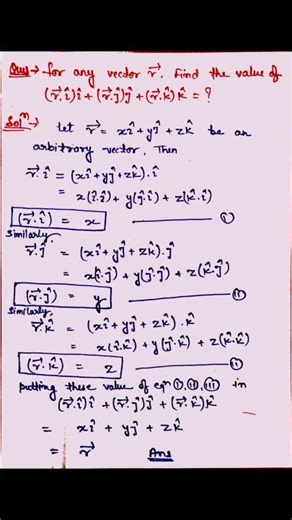 Ques → For any vector r⃗, Find the value of
(r⃗.î)î + (r⃗.ĵ)ĵ + (r⃗.k̂)k̂ = ?
Solⁿ → Let r⃗ = xî + yĵ + zk̂ be an
arbitrary vector, Then
r⃗.î = (xî + yĵ + zk̂).î
= x(î.î) + y(ĵ.î) + z(k̂.î)
(r⃗.î) = x ——— (i)
Similarly
r⃗.ĵ = (xî + yĵ + zk̂).ĵ
= x(î.ĵ) + y(ĵ.ĵ) + z(k̂.ĵ)
(r⃗.ĵ) = y ——— (ii)
Similarly
r⃗.k̂ = (xî + yĵ + zk̂).k̂
= x(î.k̂) + y(ĵ.k̂) + z(k̂.k̂)
(r⃗.k̂) = z ———
putting these value of eqⁿ (i), (ii), (iii) in
(r⃗.î)î + (r⃗.ĵ)ĵ + (r⃗.k̂)k̂
= xî + yĵ + zk̂
= r⃗ Ans